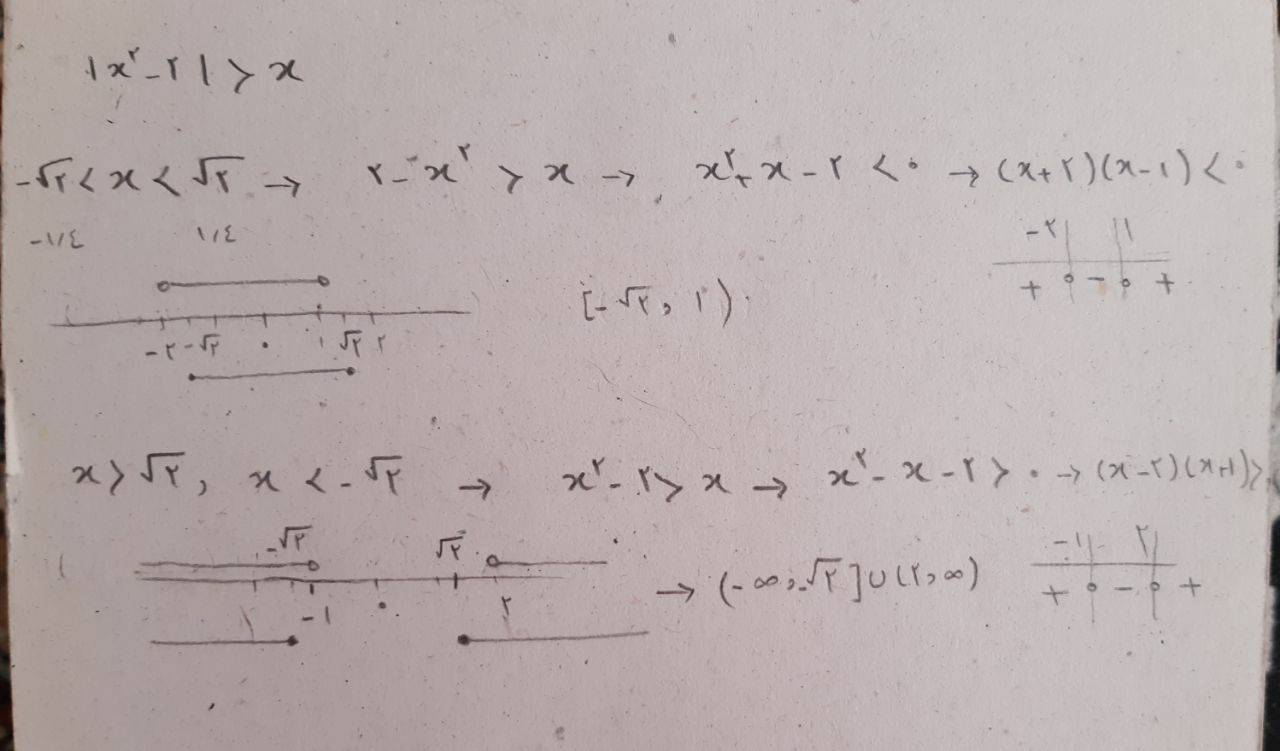 |x²-۲| > x
-√۲ < x < √۲ → ۲-x² > x → x²+x-۲ < ۰ → (x+۲)(x-۱) < ۰
-۱/٤ ۱/٤
-۲ ۱
+ ۰ - ۰ +
[-√۲, ۱)
-۲ -√۲ ۰ ۱ √۲ ۲
x > √۲, x < -√۲ → x²-۲ > x → x²-x-۲ > ۰ → (x-۲)(x+۱) >
-√۲ √۲
-۱ ۰ ۲
→ (-∞, -√۲] ∪ (۲, ∞)
-۱ ۲
+ ۰ - ۰ +